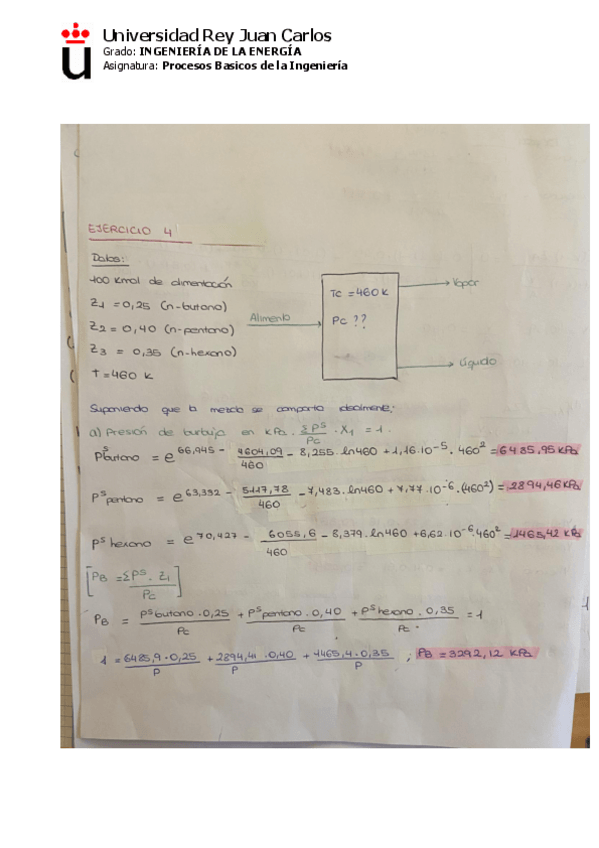 Universidad Rey Juan Carlos
Grado: INGENIERÍA DE LA ENERGÍA
Asignatura: Procesos Basicos de la Ingeniería
EJERCICIO 4
Datos:
100 Kmol de alimentación
Z1 = 0,25 (n-butano)
Z2 = 0,40 (n-pentano)
Z3 = 0,35 (n-hexano)
T = 460 K
Alimento
Tc = 460 K
Pc ??
Vapor
Líquido
Suponiendo que la mezcla se comporta idealmente:
a) Presión de burbuja en kPa. ΣP^S/Pc · X1 = 1.
P^S butano = e^66,945 - 4604,09/460 - 8,255 · ln460 + 1,16·10^-5 · 460^2 = 6485,95 kPa
P^S pentano = e^63,332 - 5117,78/460 - 7,483 · ln460 + 7,77·10^-6 · (460^2) = 2894,46 kPa
P^S hexano = e^70,427 - 6055,6/460 - 8,379 · ln460 + 6,62·10^-6 · 460^2 = 1465,42 kPa
[PB = ΣP^S · Z1/Pc]
PB = P^S butano · 0,25/Pc + P^S pentano · 0,40/Pc + P^S hexano · 0,35/Pc = 1
1 = 6485,9 · 0,25/P + 2894,41 · 0,40/P + 1465,4 · 0,35/P ; PB = 3292,12 kPa